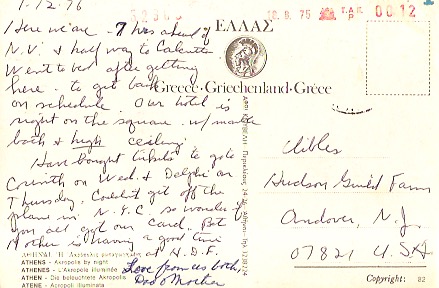 1-12-76
Here we are - 7 hrs ahead of
N.Y. & half way to Calcutta
Went to bed after getting
here - to get back
on schedule. Our hotel is
right on the square - w/ marble
bath & high ceiling.
Have bought tickets to go to
Corinth on Wed. & Delphi on
Thursday. Couldn't get off the
plane in N.Y.C. so wonder if
you all got our card. But
Mother is having a good time
at H.D.F.
Love from us both,
Dad & Mother
ΕΛΛΑΣ
Greece · Griechenland · Grèce
75
00.12
Clibles
Hudson Guild Farm
Andover, N.J.
07821 U.S.A
ATHENS - Akropolis by night
ATHENES - L'Acropole illuminée
ATHENE - Die beleuchtete Akropolis
ATENE - Acropoli illuminata
Copyright: 82